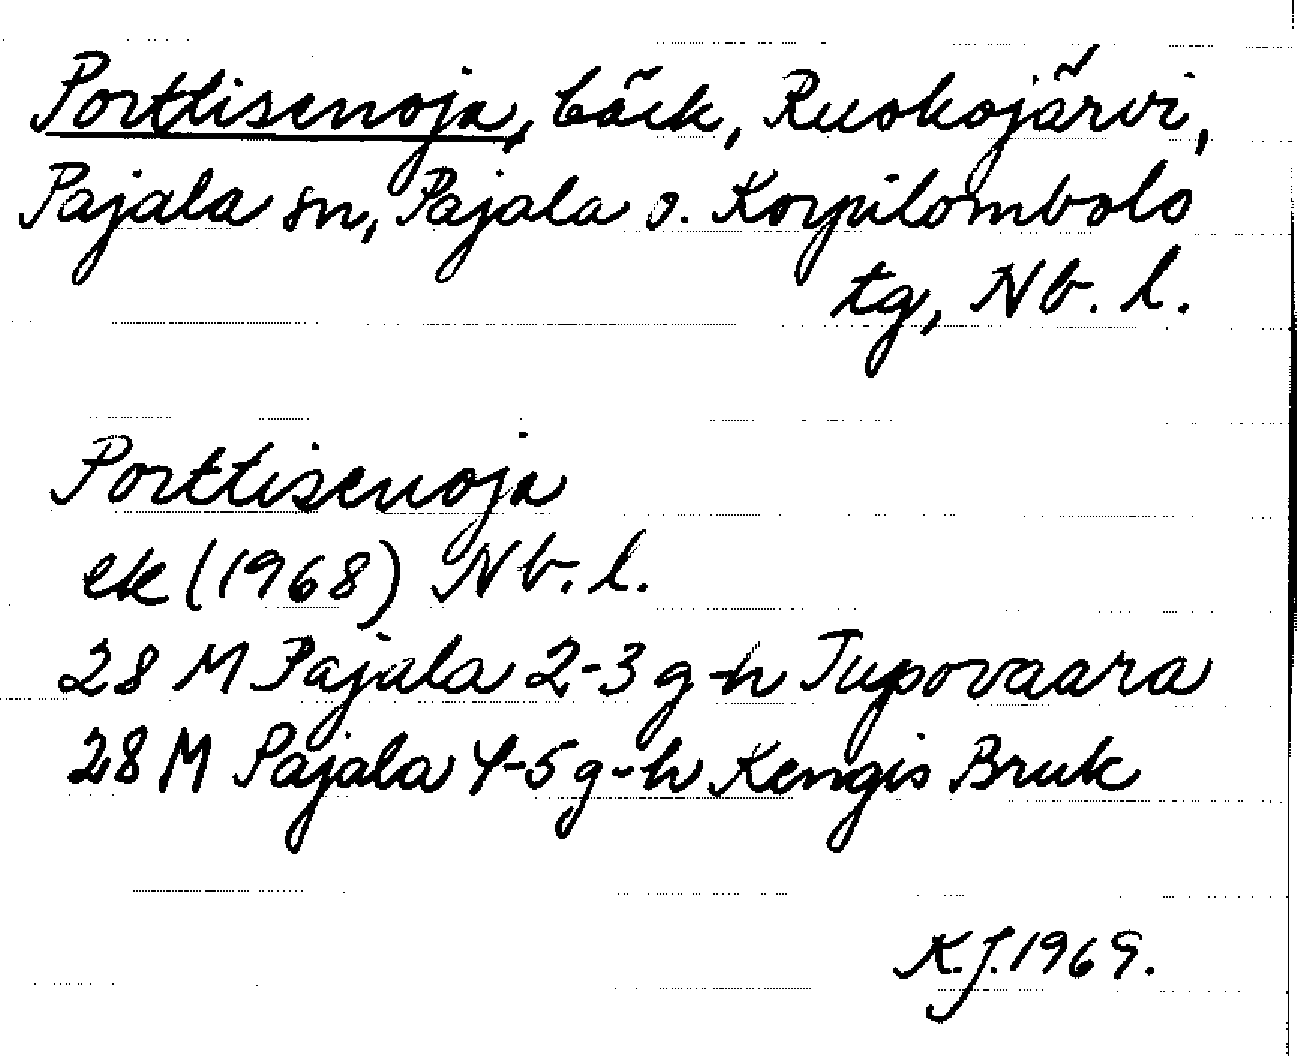 Porttisenoja, bäck, Ruokojärvi,
Pajala sn, Pajala o. Korpilombolo
tg, Nb. l.
Porttisenoja
ek (1968) Nb. l.
28 M Pajala 2-3 g-h Tupovaara
28 M Pajala 4-5 g-h Kengis Bruk
K.J. 1969.